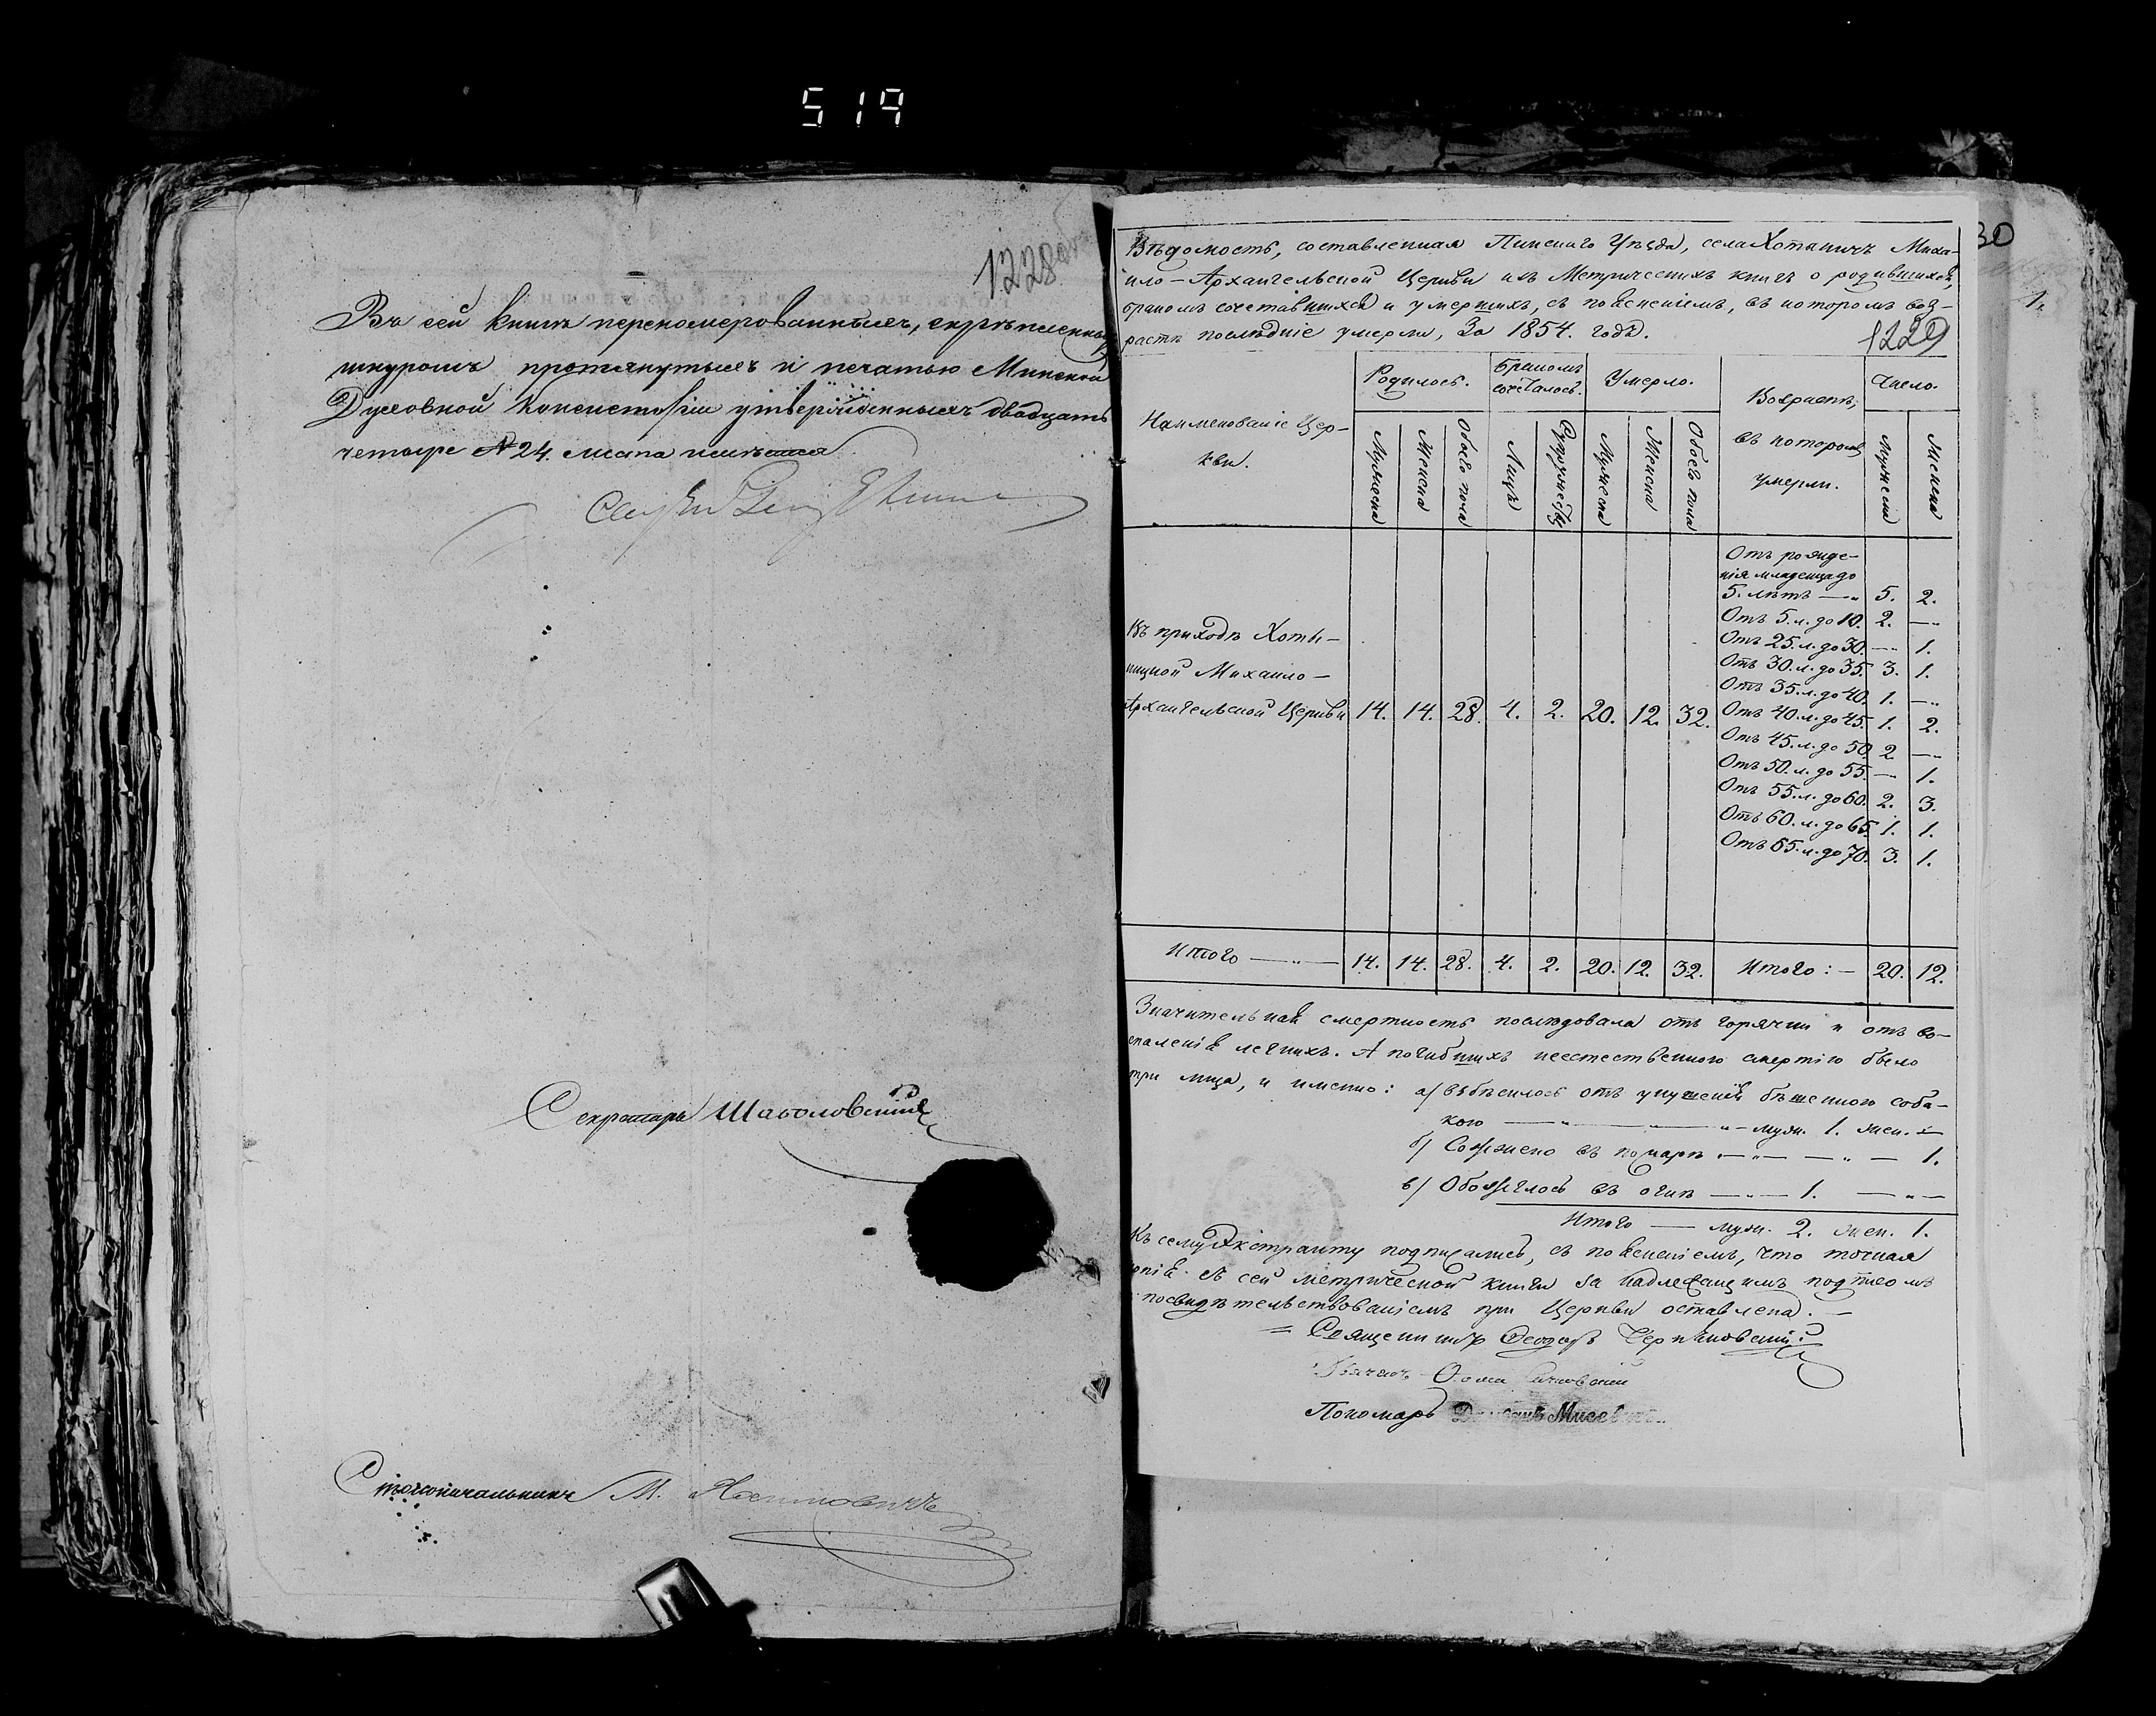 519
1228 об
Въ сей книгѣ перенумерованныхъ, скрѣпленныхъ
шнуромъ протянутыхъ и печатью Минской
Духовной Консисторіи утвержденныхъ двадцать
четыре № 24. листа имѣется
Секретарь
Столоначальникъ М.
30
1.
Вѣдомость, составленная Пинскаго Уѣзда, села Хотыничъ Миха-
ило-Архангельской Церкви изъ Метрическихъ книгъ о родившихся,
бракомъ сочетавшихся и умершихъ, съ поясненіемъ, въ которомъ воз-
растѣ послѣдніе умерли, За 1854. годъ.
1229
Наименованіе Цер-
кви.
Родилось.
Бракомъ
сочеталось.
Умерло.
Возрастъ,
въ которомъ
умерли.
Число.
Мужеска
Женска
Обоего пола
Лицъ
Супружествъ
Мужеска
Женска
Обоего пола
Мужеска
Женска
Въ приходѣ Хоты-
ницкой Михаило-
Архангельской Церкви 14. 14. 28. 4. 2. 20. 12. 32.
Отъ рожде-
нія младенца до
5. лѣтъ —„ 5. 2.
Отъ 5. л. до 10. 2. —„
Отъ 25. л. до 30. —„ 1.
Отъ 30. л. до 35. 3. 1.
Отъ 35. л. до 40. 1. —„
Отъ 40. л. до 45. 1. 2.
Отъ 45. л. до 50. 2 —„
Отъ 50. л. до 55. — 1.
Отъ 55. л. до 60. 2. 3.
Отъ 60. л. до 65. 1. 1.
Отъ 65. л. до 70. 3. 1.
Итого —„— 14. 14. 28. 4. 2. 20. 12. 32. Итого: — 20. 12.
Значительная смертность послѣдовала отъ горячки и отъ во-
спаленія легкихъ. А погибшихъ неестественною смертію было
три лица, и именно: а/ взбѣсилось отъ укушенія бѣшенною соба-
кою —„— —„— муж. 1. жен. —
б/ Сожжено въ пожарѣ —„— —„— 1.
в/ Обожглось въ огнѣ —„— 1. —„—
Итого — муж. 2. жен. 1.
Къ сему Экстракту подписались, съ поясненіемъ, что точная
копія съ сей метрической книги за надлежащимъ подписомъ
посвидѣтельствованіемъ при Церкви оставлена. —
Священникъ Ѳеодоръ
Дьячекъ Ѳома
Пономарь